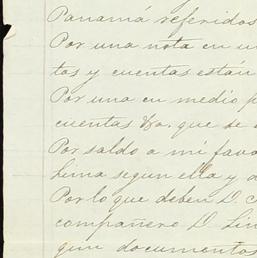 Panamá referidos
Por una nota en
tos y cuentas están
Por una en medio
cuentas &a. que se
Por saldo a mi fava
Lima segun ella y
Por lo que deben D.
compañero D. Lin
gun documentos